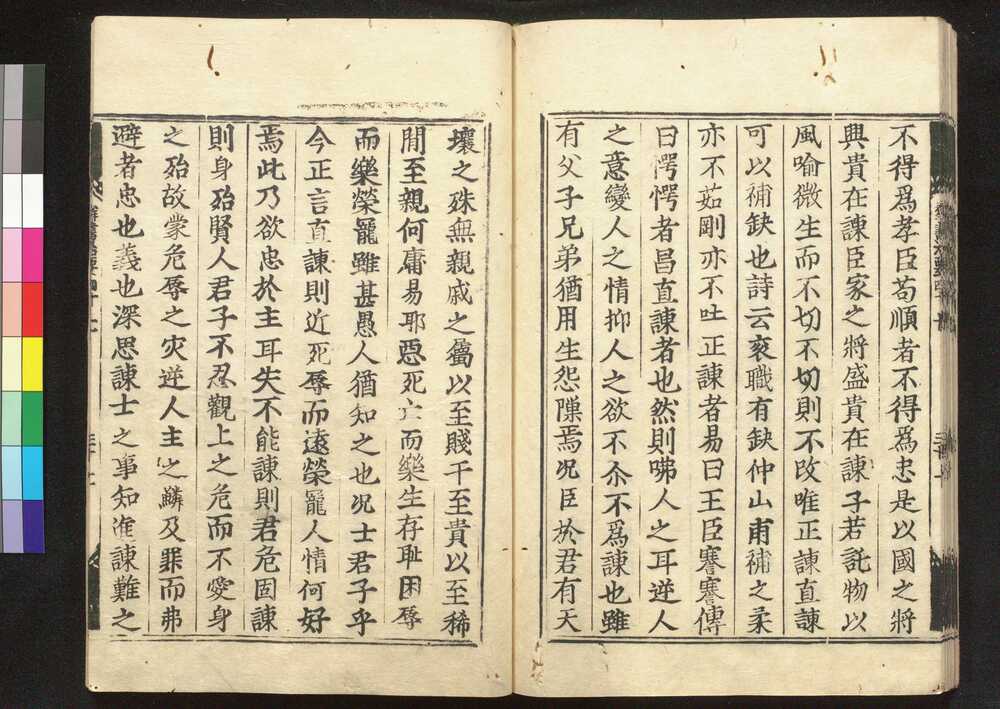 不得爲孝臣苟順者不得爲忠是以國之將
興貴在諫臣家之將盛貴在諫子若託物以
風喻微生而不切不切則不改唯正諫直諫
可以補缺也詩云袞職有缺仲山甫補之柔
亦不茹剛亦不吐正諫者易曰王臣謇謇傳
曰愕愕者昌直諫者也然則咈人之耳逆人
之意變人之情抑人之欲不尒不爲諫也雖
有父子兄弟猶用生怨隟焉况臣於君有天
壤之殊無親戚之屬以至賤干至貴以至稀
間至親何庸易耶惡死亡而樂生存耻困辱
而樂榮寵雖甚愚人猶知之也况士君子乎
今正言直諫則近死辱而遠榮寵人情何好
焉此乃欲忠於主耳失不能諫則君危固諫
則身殆賢人君子不忍觀上之危而不愛身
之殆故蒙危辱之灾逆人主之鱗及罪而弗
避者忠也義也深思諫士之事知進諫難之